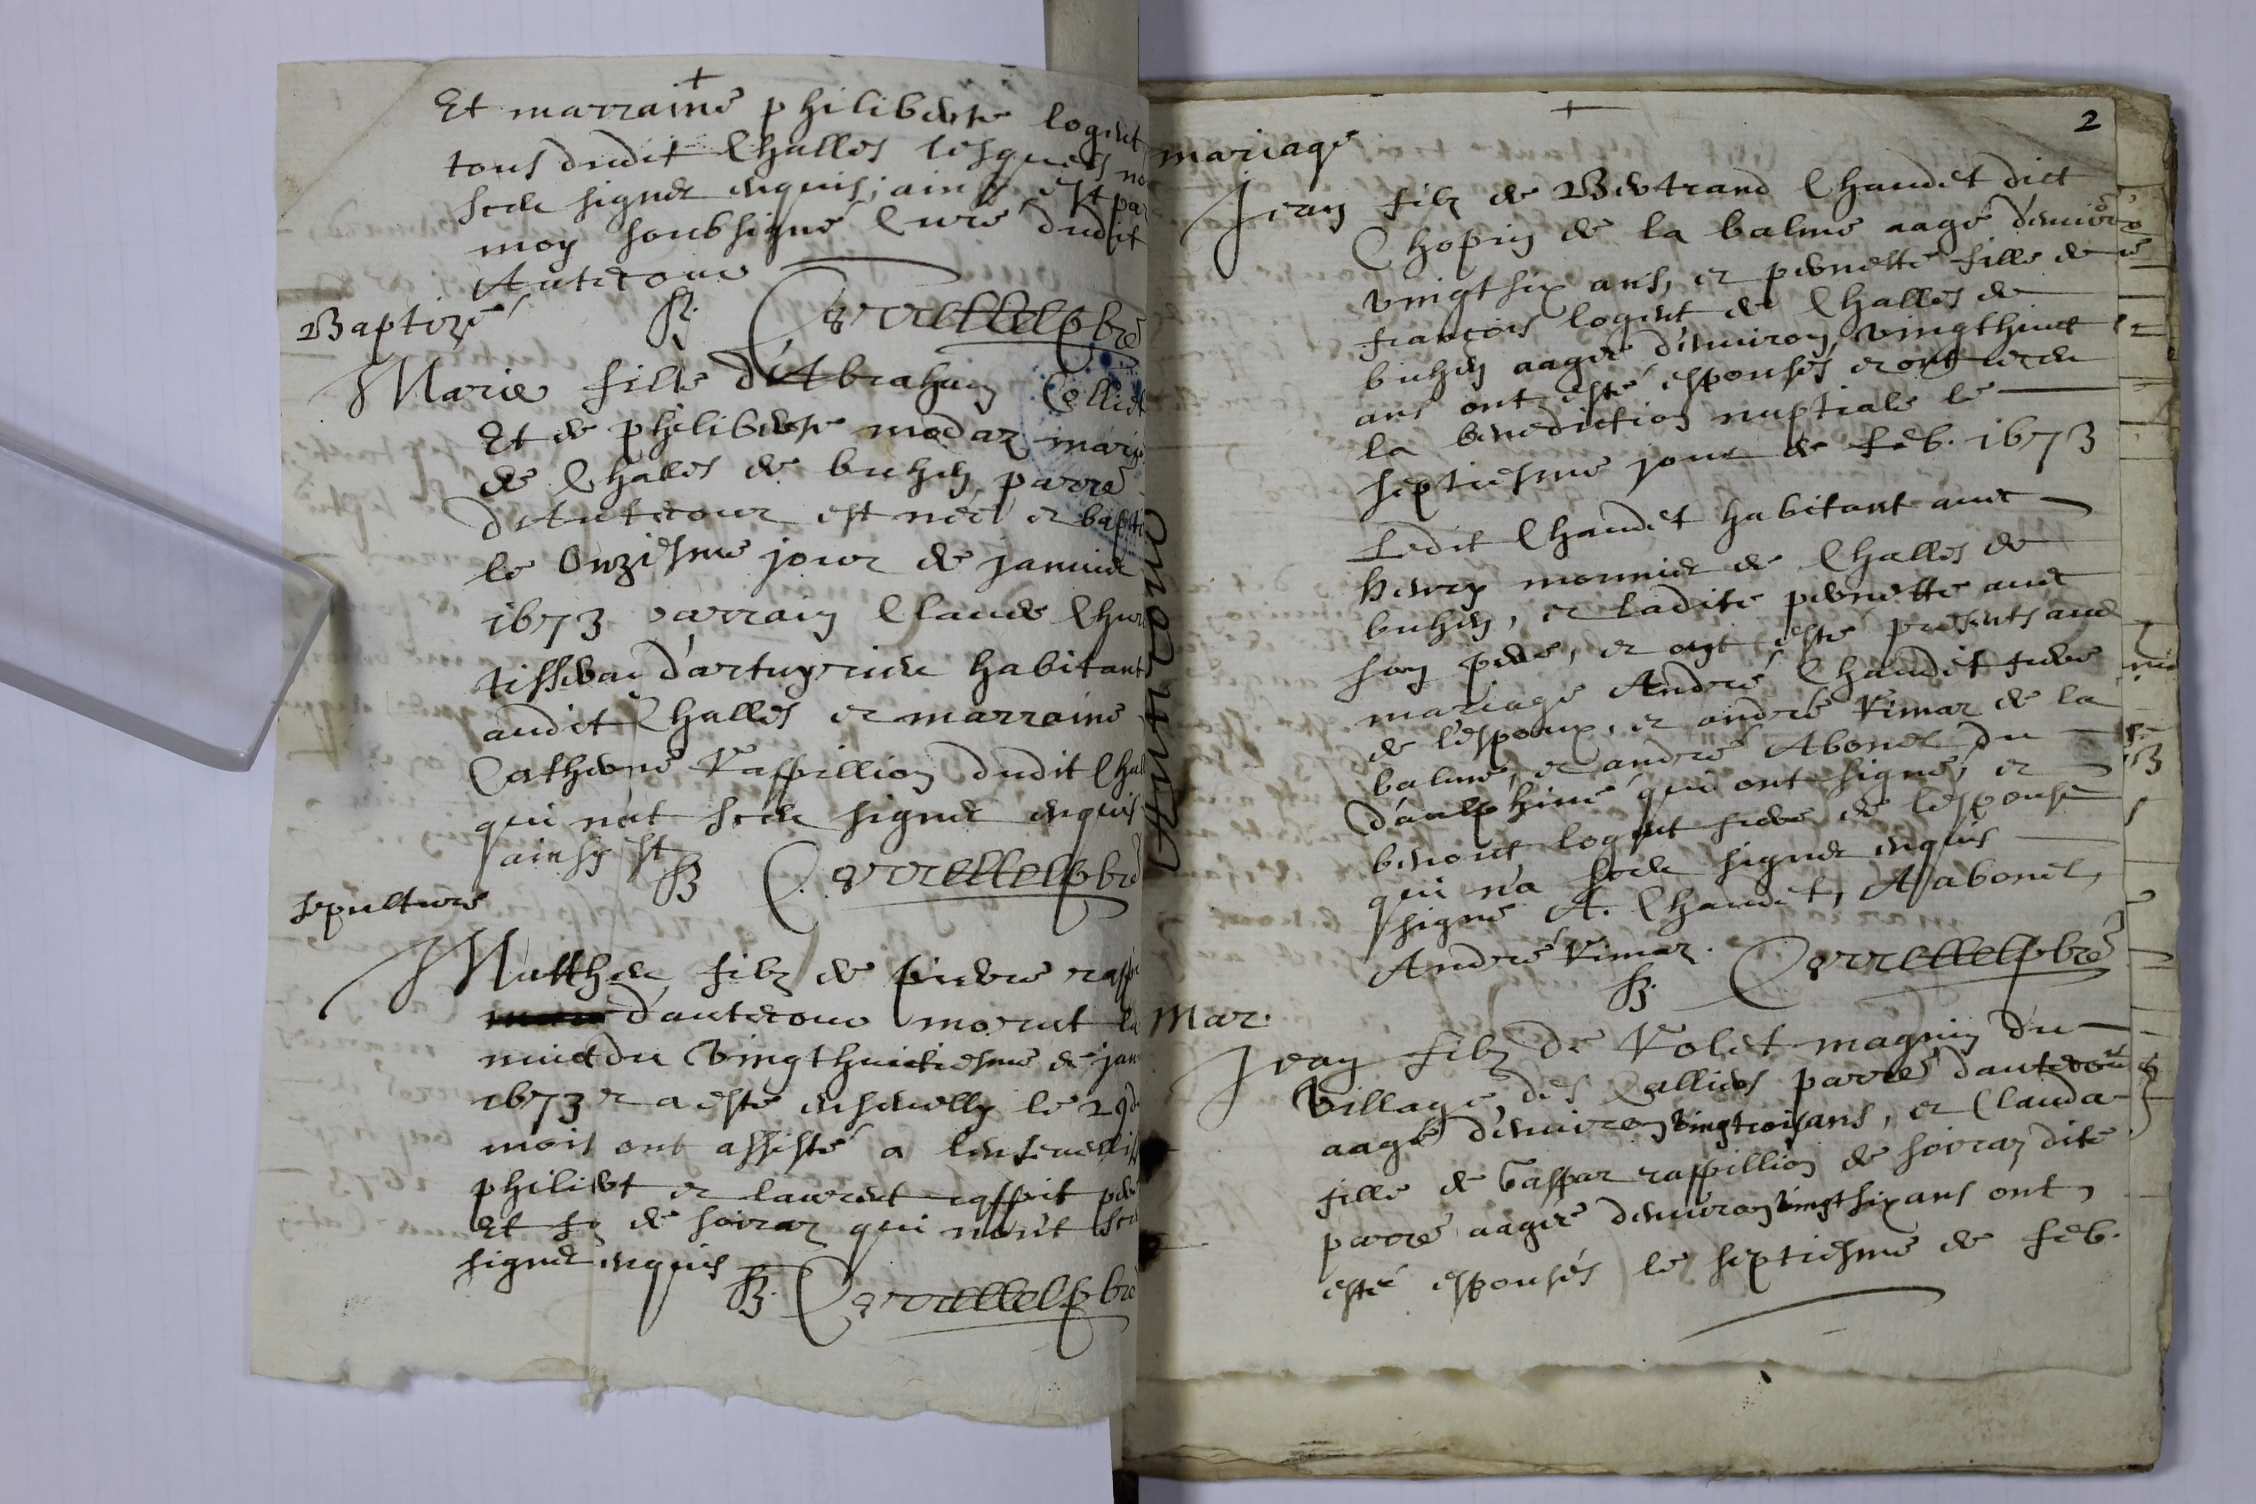 Et marraine philiberte logent
tous dudit Challes lesquels
sceu signer enquis; ainsy est par
moy soubsigné Curé dudit
Antecour
Baptizé
Marie fille d'Abraham
Et de philiberte modaz
de Challes de buhen parre
d'Antecour est neé et bapt
le Onziesme jour de janvier
1673 parrain Claude
tisseran d'artuyrieu habitant
audit Challes et marraine
Catherine Raspillion dudit Chal
qui n'at sceu signer enquis
ainsy st
sepulture
Matthieu filz de pierre rasp
d'antecour morut la
nuict du vingthuictiesme de jan
1673 et a esté ensevelly le 29 d
mois ont assisté a
philibert et laurent
Et fz de soiraz qui n'ont sce
signer enquis
Antecour
2
mariage
Jean filz de Bertrand Chaudet dict
Chopin de la balme aagé d'environ
vingtsix ans, et pernette fille de
françois logent de Challes de
buhen aageé d'environ vingthuict
ans ont esté espousés et ont receu
la benediction nuptiale le
septiesme jour de feb. 1673
Ledit Chaudet habitant avec
henry monnier de Challes de
buhen, et ladite pernette avec
son pere, et ont esté presents aud
mariage André Chaudet frere
de l'espoux, et andré Rimaz de la
balme, et andré Abonel du
dauphiné qui ont signé, et
benoit logent frere de l'espouse
qui n'a sceu signer enquis
signé A. Chaudet, A abonel,
André Rimaz.
Mar.
Jean filz de Rolet magnin du
Village des Calliers parre d'antecour
aagé d'environ vingtrois ans, et Clauda
fille de Gaspar raspillion de soiraz dite
parre aageé d'environ vingtsix ans ont
esté espousés le septiesme de feb.